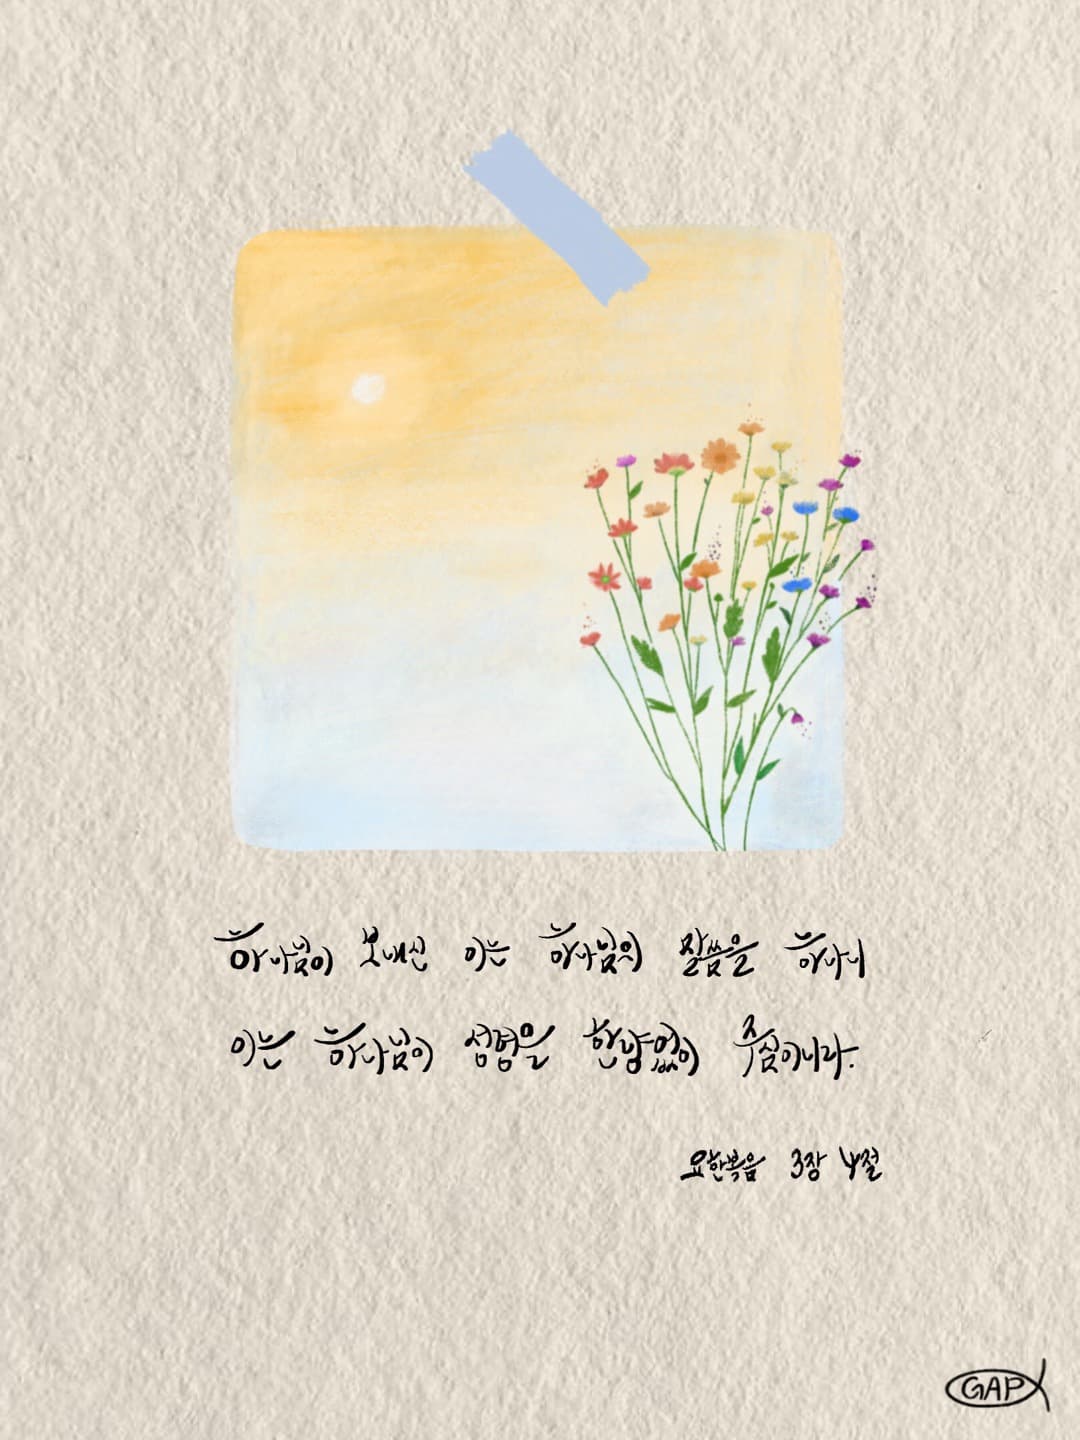 하나님이 보내신 이는 하나님의 말씀을 하나니
이는 하나님이 성령을 한량없이 주심이니라.
요한복음 3장 4절
GAP